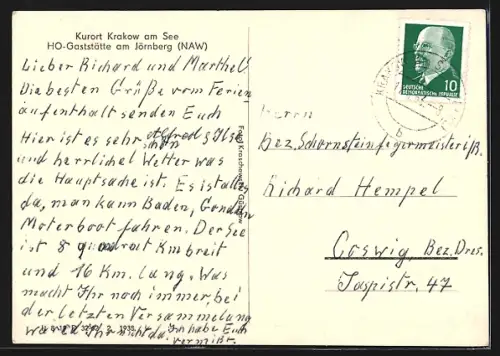 Kurort Krakow am See
HO-Gaststätte am Jörnberg (NAW)
Lieber Richard und Marthel!
Die besten Grüße vom Ferien
aufenthalt senden Euch
Alfred u. Ilse
Hier ist es sehr schön
und herrliches Wetter was
die Hauptsache ist. Es ist alles
da, man kann Baden, Gondeln
Moterboot fahren. Der See
ist 8 quadrat Km breit
und 16 Km. lang. Was
macht Ihr noch immer, bei
der letzten Versammlung
ward Ihr nicht da. Ich habe Euch
vermißt.
Foto: Kraschewski, Güstrow
DEUTSCHE
DEMOKRATISCHE REPUBLIK
10
b
Herrn
Bez. Schornsteinfegermeister i/R.
Richard Hempel
Coswig, Bez. Dres.
Jaspistr. 47